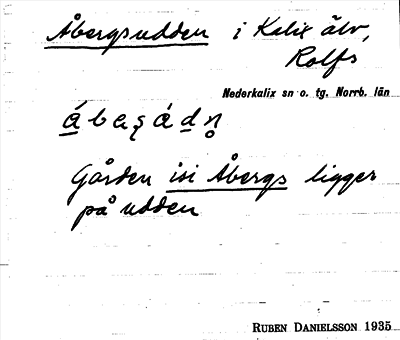 Åbergsudden i Kalix älv,
Rolfs
Nederkalix sn o. tg. Norrb. län
Gården isi Åbergs ligger
på udden
RUBEN DANIELSSON 1935